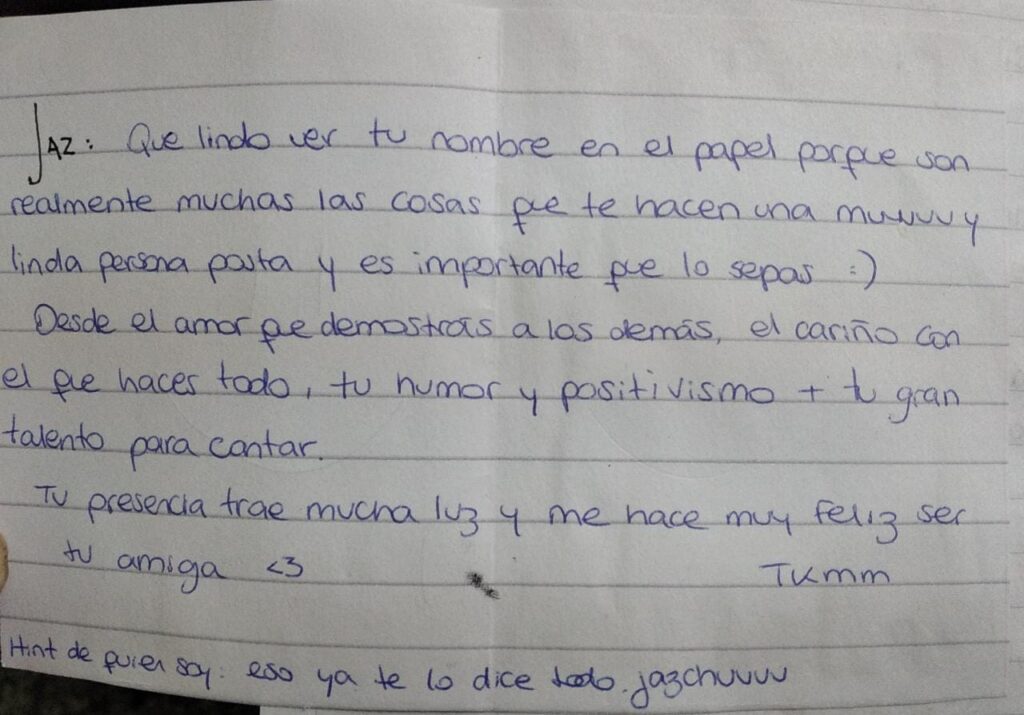 JAZ: Que lindo ver tu nombre en el papel porque son
realmente muchas las cosas que te hacen una muuuuy
linda persona posta y es importante que lo sepas :)
Desde el amor que demostrás a los demás, el cariño con
el que haces todo, tu humor y positivismo + tu gran
talento para cantar.
Tu presencia trae mucha luz y me hace muy feliz ser
tu amiga <3
TKmm
Hint de quien soy: eso ya te lo dice todo. jazchuuuu